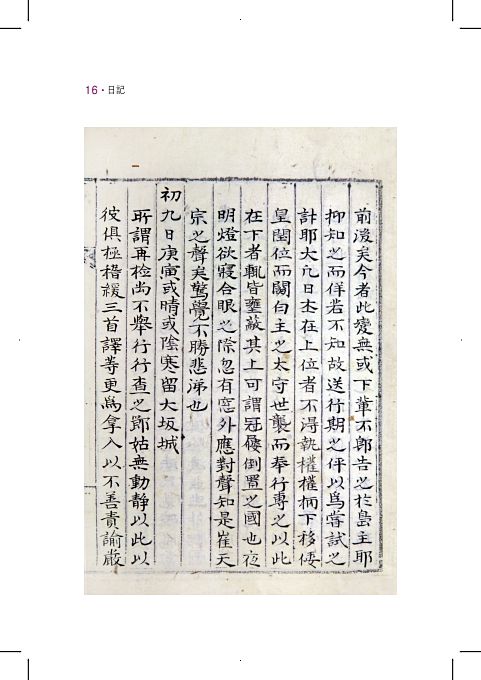 16 · 日記
前後矣今者此變無或下輩不卽告之於島主耶
抑知之而佯若不知故送行期之伻以爲嘗試之
計耶大凡日本在上位者不得執權權柄下移倭
皇閏位而關白主之太守世襲而奉行專之以此
在下者輒皆壅蔽其上可謂冠屨倒置之國也夜
明燈欲寢合眼之際忽有窓外應對聲知是崔天
宗之聲矣驚覺不勝悲涕也
初九日庚寅或晴或陰寒留大坂城
所謂再檢尙不擧行行査之節姑無動靜以此以
彼俱極稽緩三首譯等更爲拿入以不善責諭嚴